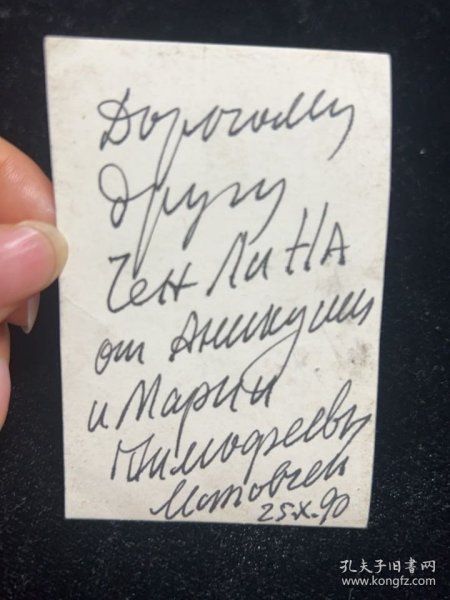 Дорогому
другу
Чен Ли НА
от Аникуши
и Марии
Тимофеевы
25.X.90
孔夫子旧书网
www.kongfz.com